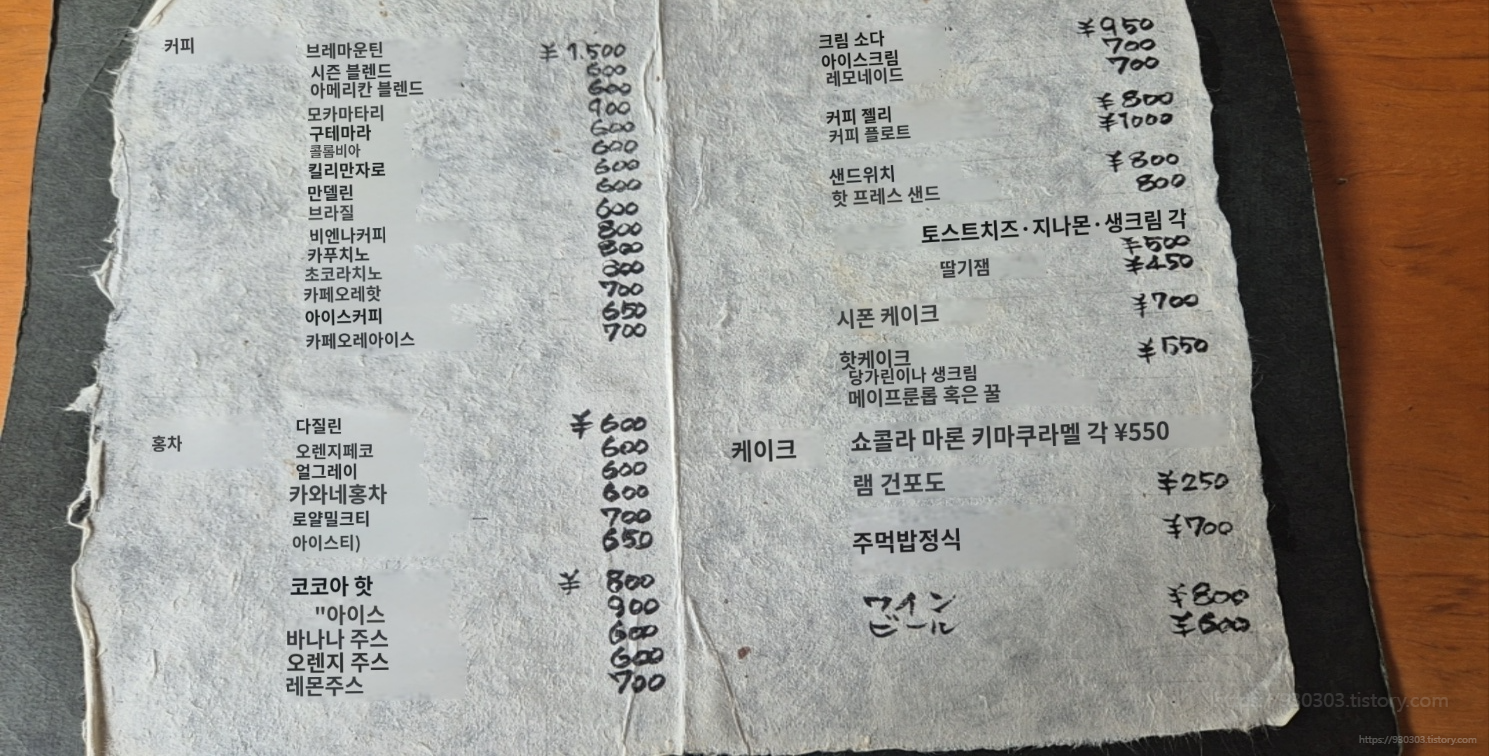 커피
브레마운틴 ¥1,500
시즌 블렌드 600
아메리칸 블렌드 600
모카마타리 900
구테마라 600
콜롬비아 600
킬리만자로 600
만델린 600
브라질 600
비엔나커피 800
카푸치노 800
초코라치노 800
카페오레핫 700
아이스커피 650
카페오레아이스 700
홍차
다질린 ¥600
오렌지페코 600
얼그레이 600
카와네홍차 600
로얄밀크티 700
아이스티) 650
코코아 핫 ¥ 800
"아이스 900
바나나 주스 600
오렌지 주스 600
레몬주스 700
크림 소다 ¥950
아이스크림 700
레모네이드 700
커피 젤리 ¥800
커피 플로트 ¥1000
샌드위치 ¥800
핫 프레스 샌드 800
토스트치즈·지나몬·생크림 각
¥500
딸기잼 ¥450
시폰 케이크 ¥700
핫케이크 ¥550
당가린이나 생크림
메이프룬롭 혹은 꿀
케이크 쇼콜라 마론 키마쿠라멜 각 ¥550
램 건포도 ¥250
주먹밥정식 ¥700
ワイン ¥800
ビール ¥600
https://930303.tistory.com
https://930303.tistory.com